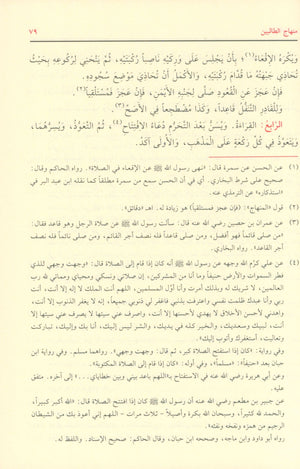 منهاج الطالبين ٧٩
وَيُكْرَهُ الإِقْعَاءُ(١)؛ بِأَنْ يَجْلِسَ عَلَى وَرِكَيْهِ نَاصِباً رُكْبَتَيْهِ، ثُمَّ يَنْحَنِي لِرُكُوعِهِ بِحَيْثُ
تُحَاذِي جَبْهَتُهُ مَا قُدَّامَ رُكْبَتَيْهِ، وَالأَكْمَلُ أَنْ تُحَاذِيَ مَوْضِعَ سُجُودِهِ.
فَإِنْ عَجَزَ عَنِ الْقُعُودِ صَلَّى لِجَنْبِهِ الأَيْمَنِ، فَإِنْ عَجَزَ فَمُسْتَلْقِياً(٢).
وَلِلْقَادِرِ التَّنَفُّلُ قَاعِداً، وَكَذَا مُضْطَجِعاً فِي الأَصَحِّ(٣).
الرَّابِعُ: الْقِرَاءَةُ. وَيُسَنُّ بَعْدَ التَّحَرُّمِ دُعَاءُ الافْتِتَاحِ(٤)، ثُمَّ التَّعَوُّذُ، وَيُسِرُّهُمَا،
وَيَتَعَوَّذُ فِي كُلِّ رَكْعَةٍ عَلَى الْمَذْهَبِ، وَالأُولَى آكَدُ.
(١) عن الحسن عن سمرة قال: «نهى رسول الله ﷺ عن الإقعاء في الصلاة». رواه الحاكم وقال:
صحيح على شرط البخاري. أي في أن الحسن سمع من سمرة مطلقاً كما نقله ابن عبد البر في
«استذكاره» عن الترمذي عنه.
(٢) قول «المنهاج»: (فإن عجز فمستلقياً) هو زيادة له. اهـ «دقائق».
(٣) عن عمران بن حصين رضي الله عنه قال: سألت رسول الله ﷺ عن صلاة الرجل وهو قاعد فقال:
«من صلى قائماً فهو أفضل، ومن صلى قاعداً فله نصف أجر القائم، ومن صلى نائماً فله نصف
أجر القاعد». رواه البخاري.
(٤) عن علي كرَّم الله وجهه عن رسول الله ﷺ أنه كان إذا قام إلى الصلاة قال: «وجهت وجهي للذي
فطر السموات والأرض حنيفاً وما أنا من المشركين، إن صلاتي ونسكي ومحياي ومماتي لله رب
العالمين، لا شريك له وبذلك أمرت وأنا أوَّل المسلمين، اللهم أنت الملك لا إله إلا أنت، أنت
ربي وأنا عبدك ظلمت نفسي واعترفت بذنبي فاغفر لي ذنوبي جميعاً، إنه لا يغفر الذنوب إلا أنت،
واهدني لأحسن الأخلاق لا يهدي لأحسنها إلا أنت، واصرف عني سيئها لا يصرف عني سيئها إلا
أنت، لبيك وسعديك، والخير كله في يديك، والشر ليس إليك، أنا بك وإليك، تباركت
وتعاليت، أستغفرك وأتوب إليك»
وفي رواية: «كان إذا استفتح الصلاة كبر، ثم قال: وجهت وجهي». رواهما مسلم. وفي رواية ابن
حبان بعد «حنيفاً»: «مسلماً»، وفي أوله: «كان إذا قام إلى الصلاة المكتوبة».
وعن أبي هريرة رضي الله عنه في الاستفتاح بـ«اللهم باعد بيني وبين خطاياي ...» إلى آخره. متفق
عليه.
عن جبير بن مطعم رضي الله عنه أن رسول الله ﷺ كان إذا افتتح الصلاة قال: «الله أكبر كبيراً،
والحمد لله كثيراً، وسبحان الله بكرة وأصيلاً - ثلاث مرات - اللهم إني أعوذ بك من الشيطان
الرجيم من همزه ونفخه ونفثه».
رواه أبو داود وابن ماجه، وصححه ابن حبان، وقال الحاكم: صحيح الإسناد. واللفظ له.